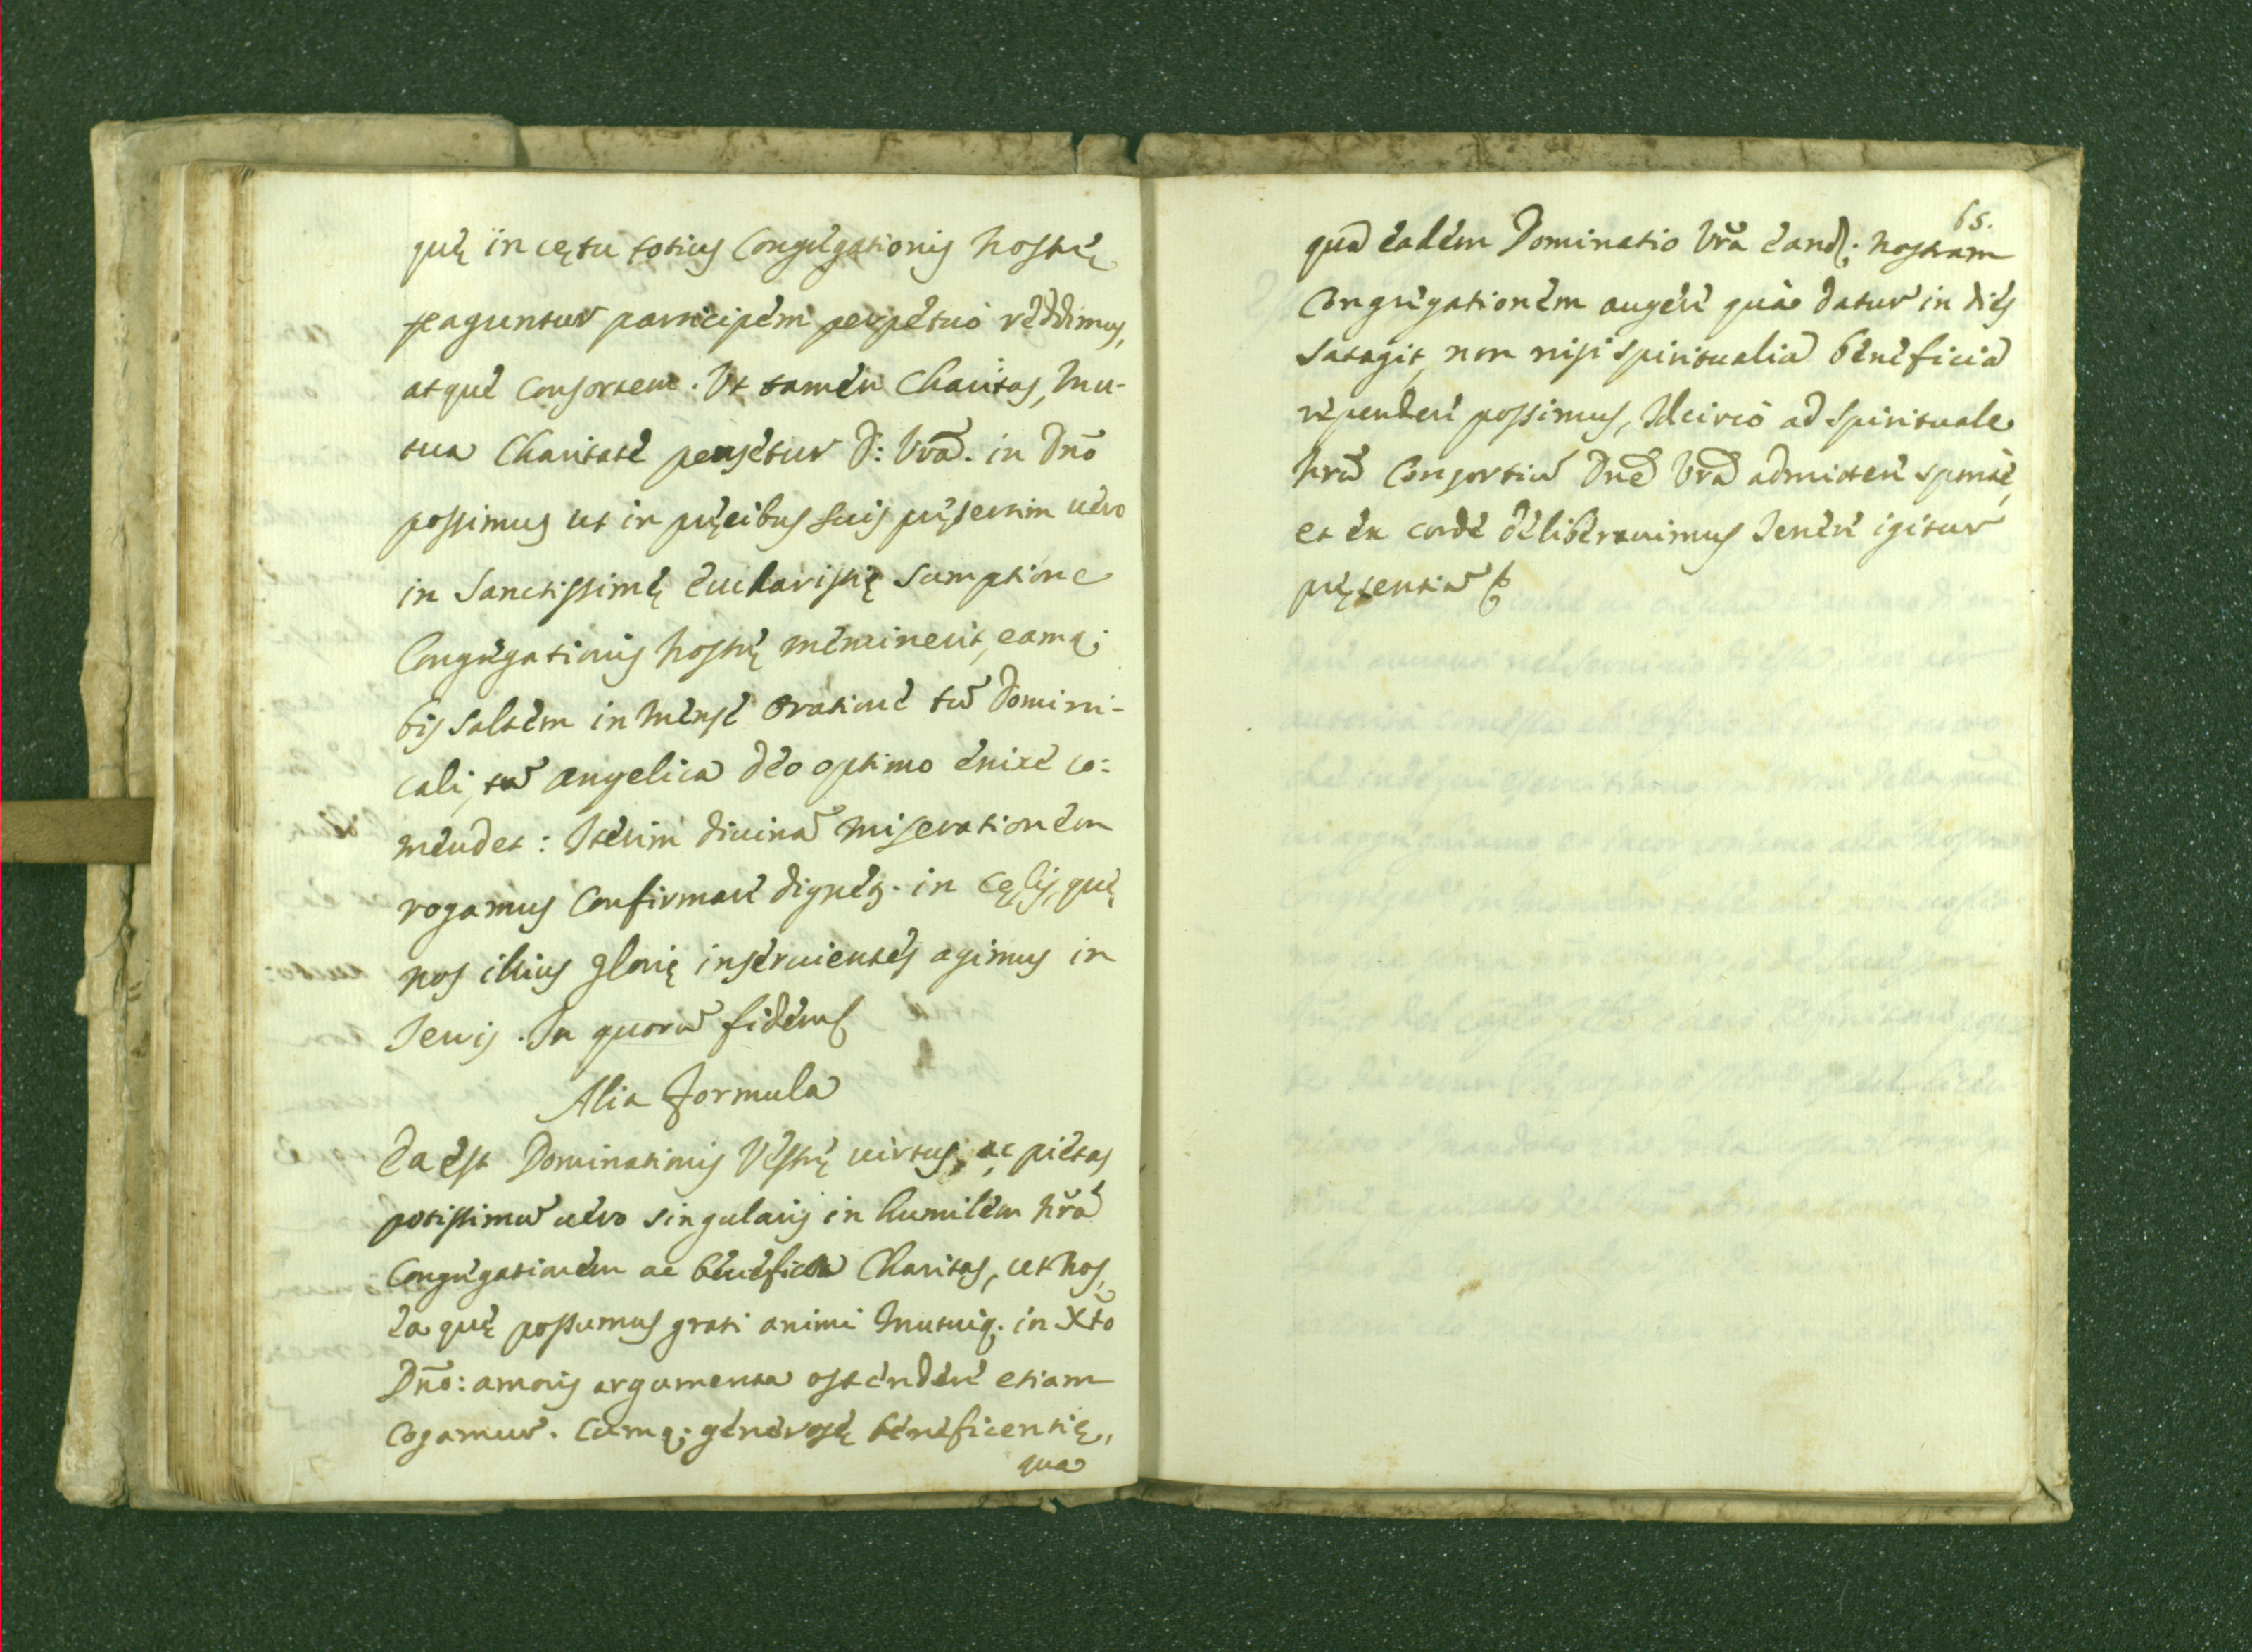 quę in cętu totius Congregationis nostrę
peraguntur participem perpetuò reddimus,
atque consortem. Vt tamen Charitas, mu-
tua Charitate pensetur D: Vrã. in Dño
possimus ut in pręcibus suis pręsertim uero
in Sanctissimę Eucharistię sumptione
Congregationis nostrę meminerit, eamq;
bis saltem in mense oratione tũ Domini-
cali, tũ Angelica Deo optimo enixe cõ=
mendet: Iterim diuinã miserationem
rogamus confirmare dignetʒ. in Cęlis, quę
nos illius glorię inseruientes agimus in
Terris. In quorũ fidem
Alia Formula
Ea est Dominationis Vestrę uirtus, ac pietas
potissimũ uero singularis in humilem nrã̃
Congregationem ac benefica Charitas, ut nos,
ea quę possumus grati animi mutuiq. in Xto
Dño: amoris argumenta ostendere etiam
cogamur. Cumq; generosę beneficentię,
qua
65.
qua eadem Dominatio Vrã eand; nostram
Congregationem augere qua datur in dies
satagit, non nisi spiritualia beneficia
rependere possimus, Idcirco ad spirituale
nrũ Consortiũ Dñe Vrã admittere sponte,
et ex corde deliberauimus Tenere igitur
pręsentiũ &